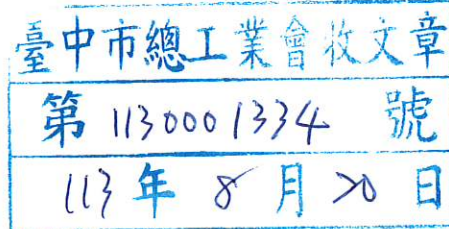 臺中市總工業會收文章
第 1130001334 號
113 年 8 月 20 日